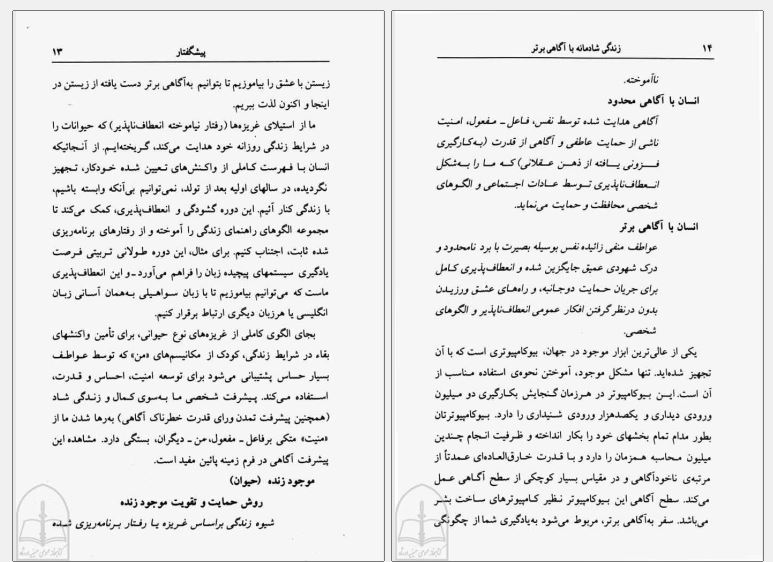 ۱۳
پیشگفتار
زیستن با عشق را بیاموزیم تا بتوانیم به‌آگاهی برتر دست یافته از زیستن در
اینجا و اکنون لذت ببریم.
ما از استیلای غریزه‌ها (رفتار نیاموخته انعطاف‌ناپذیر) که حیوانات را
در شرایط زندگی روزانه خود هدایت می‌کند، گریخته‌ایم. از آنجائیکه
انسان بـا فهرست کاملی از واکنش‌های تعیین شده خودکار، تجهیز
نگردیده، در سالهای اولیه بعد از تولد، نمی‌توانیم بی‌آنکه وابسته باشیم،
با زندگی کنار آئیم. این دوره گشودگی و انعطاف‌پذیری، کمک می‌کند تا
مجموعه الگوهای راهنمای زندگی را آموخته و از رفتارهای برنامه‌ریزی
شده ثابت، اجتناب کنیم. برای مثال، این دوره طـولانی تـربیتی فـرصت
یادگیری سیستمهای پیچیده زبان را فراهم می‌آورد ـ و این انعطاف‌پذیری
ماست که می‌توانیم بیاموزیم تا با زبان سـواهـیلی به‌همان آسانی زبـان
انگلیسی یا هرزبان دیگری ارتباط برقرار کنیم.
بجای الگوی کاملی از غریزه‌های نوع حیوانی، برای تأمین واکنشهای
بقاء در شرایط زندگی، کودک از مکانیسم‌های «من» که توسط عـواطـف
بسیار حساس پشتیبانی می‌شود برای توسعه امنیت، احساس و قـدرت،
استـفاده مـی‌کند. پـیشرفت شـخصی مـا بـه‌سـوی کـمال و زنـدگی شـاد
(همچنین پیشرفت تمدن ورای قدرت خطرناک آگاهی) به‌رها شدن ما از
«منیت» متکی برفاعل ـ مفعول، من ـ دیگران، بستگی دارد. مشاهده این
پیشرفت آگاهی در فرم زمینه پائین مفید است.
موجود زنده (حیوان)
روش حمایت و تقویت موجود زنده
شیوه زندگی براساس غریزه یـا رفتـار بـرنامه‌ریزی شده
۱۴
زندگی شادمانه با آگاهی برتر
ناآموخته.
انسان با آگاهی محدود
آگاهی هدایت شده توسط نفس، فـاعل ـ مـفعول، امـنیت
ناشی از حمایت عاطفی و آگاهی از قدرت (بـه‌کارگیری
فـزونی یـافته از ذهـن عـقلانی) کـه مـا را بـه‌شکل
انـعطاف‌ناپذیری تـوسط عـادات اجـتماعی و الگـوهای
شخصی محافظت و حمایت می‌نماید.
انسان با آگاهی برتر
عواطف منفی زائیده نفس بوسیله بصیرت با برد نامحدود و
درک شهودی عمیق جایگزین شده و انعطاف‌پذیری کـامل
برای جریان حمـایت دوجـانبه، و راه‌های عشـق ورزیـدن
بدون درنظر گرفتن افکار عمومی انعطاف‌ناپذیر و الگوهای
شخصی.
یکی از عالی‌ترین ابزار موجود در جهان، بیوکامپیوتری است که با آن
تجهیز شده‌اید. تنها مشکل موجود، آموختن نحوه‌ی استفاده منـاسب از
آن است. ایـن بـیوکامپیوتر در هـرزمان گـنجایش بکـارگیری دو مـیلیون
ورودی دیداری و یکصدهزار ورودی شنیداری را دارد. بـیوکامپیوترتان
بطور مدام تمام بخشهای خود را بکار انداخته و ظـرفیت انجام چـندین
میلیون محـاسبه همزمان را دارد و بـا قـدرت خارق‌العاده‌ای عمدتاً از
مرتبه‌ی ناخودآگاهی و در مقیاس بسیار کوچکی از سطح آگـاهی عـمل
می‌کند. سطح آگاهی این بیوکامپیوتر نظیر کامپیوترهای ساخت بشـر
می‌باشد. سفر به‌آگاهی برتر، مربوط می‌شود به‌یادگیری شما از چگونگی